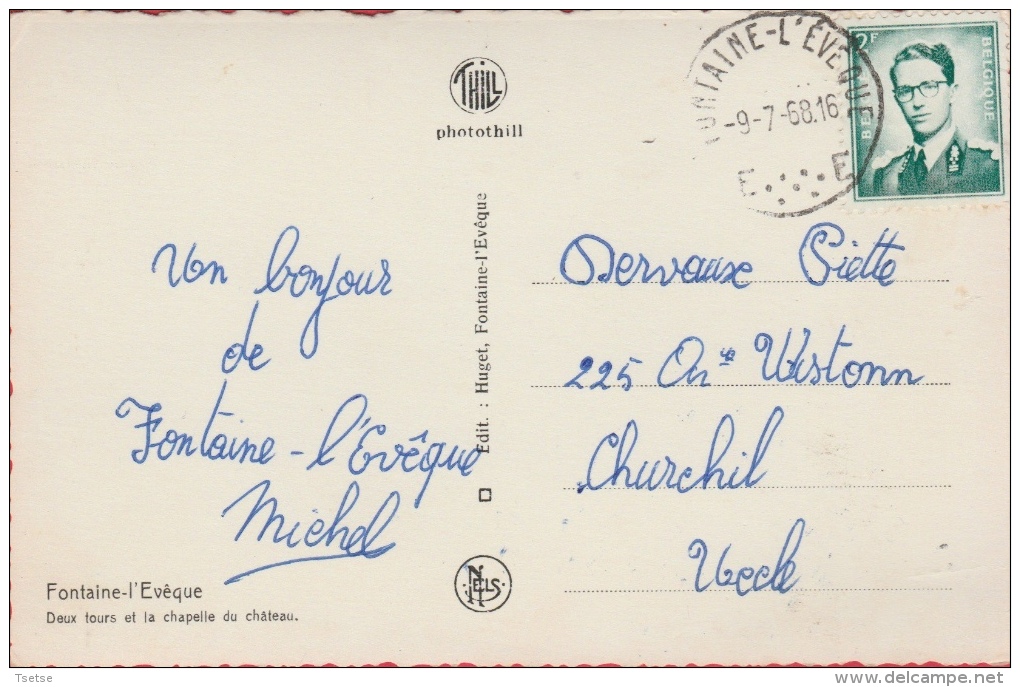 THILL
photothill
FONTAINE-L'ÉVÊQUE
-9-7-68.16
E E
2F
BELGIQUE
Un bonjour
de
Fontaine-l'Evêque
Michel
Edit. : Huget, Fontaine-l'Evêque
NELS
Dervaux Piette
225 Wistonn
Churchil
Uccle
Fontaine-l'Evêque
Deux tours et la chapelle du château.
Tsetse
www.delcampe.net